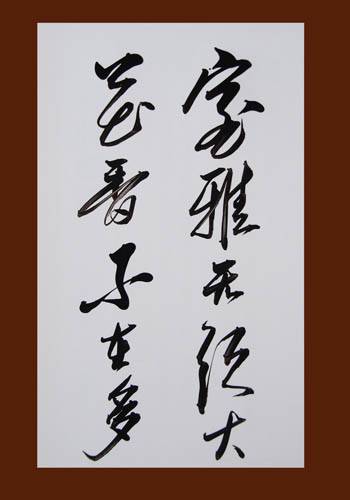 室雅无须大
花香不在多